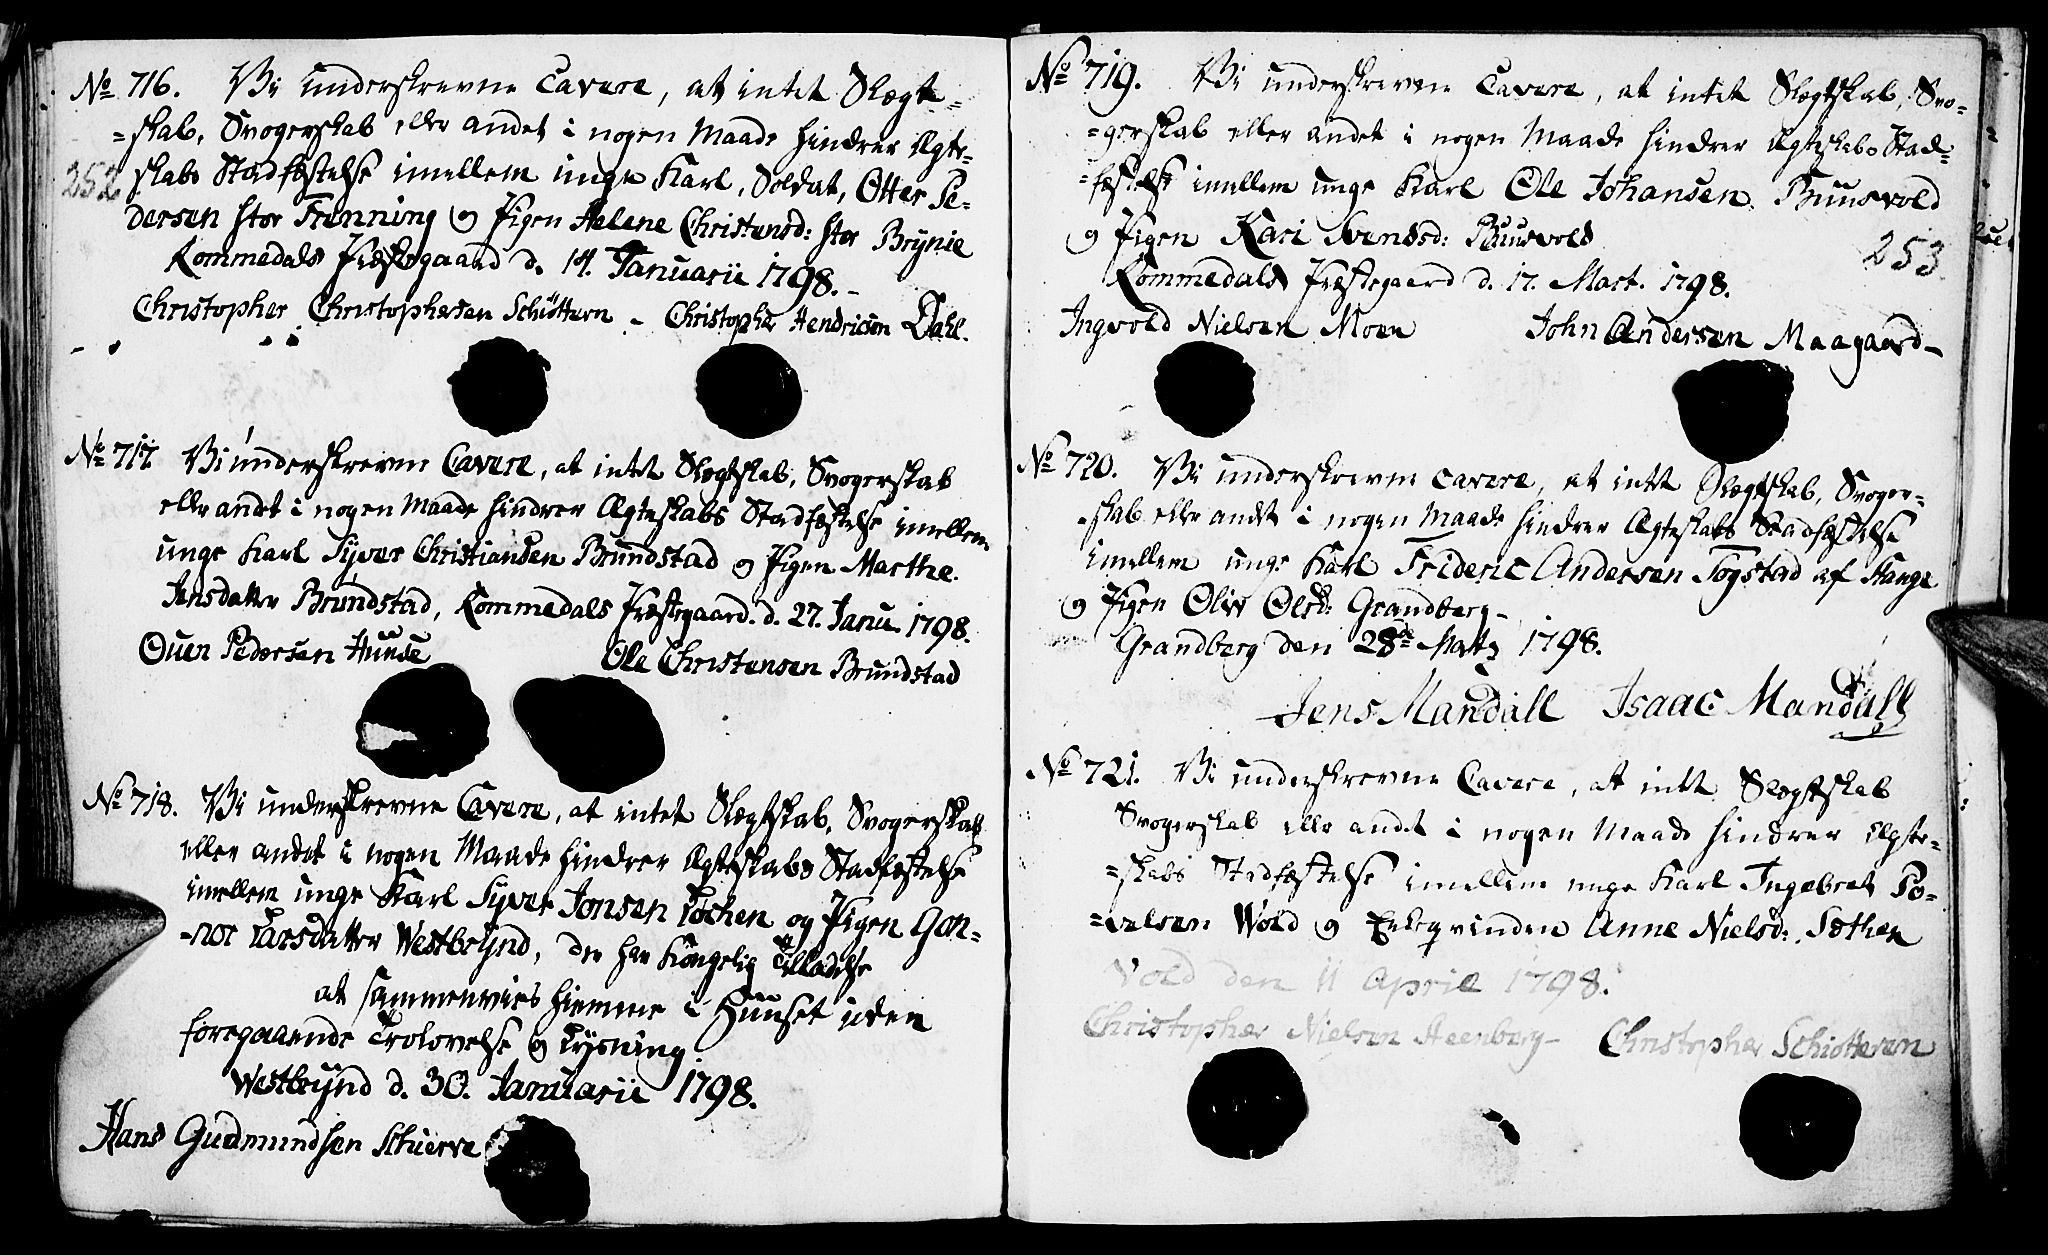 No 716. Vi underskrevne Cavere, at intet Slægt=
=skab, Svogerskab eller andet i nogen Maade hindrer Ægte=
252
skabs Stadfæstelse imellem unge Karl, Soldat, Otter Pe=
dersen stor Frenning og Pigen Helene Christensd: stor Brynie
Rommedals Præstegaard d. 14. Januarii 1798.
Christopher Christophersen Schiøttern - Christopher Hendricsen Dahl.
No 717. Vi underskrevne Cavere, at intet Slægtskab, Svogerskab
eller andet i nogen Maade hindrer Ægteskabs Stadfæstelse imellem
unge Karl Syver Christiansen Brundstad og Pigen Marthe
Jensdatter Brundstad, Rommedals Præstegaard d. 27. Janu. 1798.
Ouen Pedersen Huuse Ole Christensen Brundstad
No 718. Vi underskrevne Cavere, at intet Slægtskab, Svogerskab
eller andet i nogen Maade hindrer Ægteskabs Stadfæstelse
imellem unge Karl Syver Jonsen Løchen og Pigen Gon=
=nor Larsdatter Westbrynd, der har Kongelig Tilladelse
at sammenvies hiemme i Huuset uden
foregaaende Trolovelse og Lysning.
Westbrynd d. 30. Januarii 1798.
Hans Gudmundsen Schierve
No 719. Vi underskrevne Cavere, at intet Slægtskab, Svo=
=gerskab eller andet i nogen Maade hindrer Ægteskabs Stad=
=fæstelse imellem unge Karl Ole Johansen Buusvold
og Pigen Kari Svendsd: Buusvold
253
Rommedals Præstegaard d. 17. Mart. 1798.
Ingvold Nielsen Moen John Andersen Maagaard
No 720. Vi underskrevne cavere, at intet Slægtskab, Svoger=
=skab eller andet i nogen Maade hindrer Ægteskabs Stadfæstelse
imellem unge Karl Frideric Andersen Togstad af Stange
og Pigen Oliv Olsd: Grandberg
Grandberg den 28de Martz 1798.
Jens Mandall Isaac Mandall
No 721. Vi underskrevne Cavere, at intet Slægtskab
Svogerskab eller andet i nogen Maade hindrer Ægte=
=skabs Stadfæstelse imellem unge Karl Ingebret Po=
=velsen Wold og Enkeqvinden Anne Nielsd: Sæthen
Vold den 11 April 1798.
Christopher Nielsen Steenberg Christopher Schiøtteren